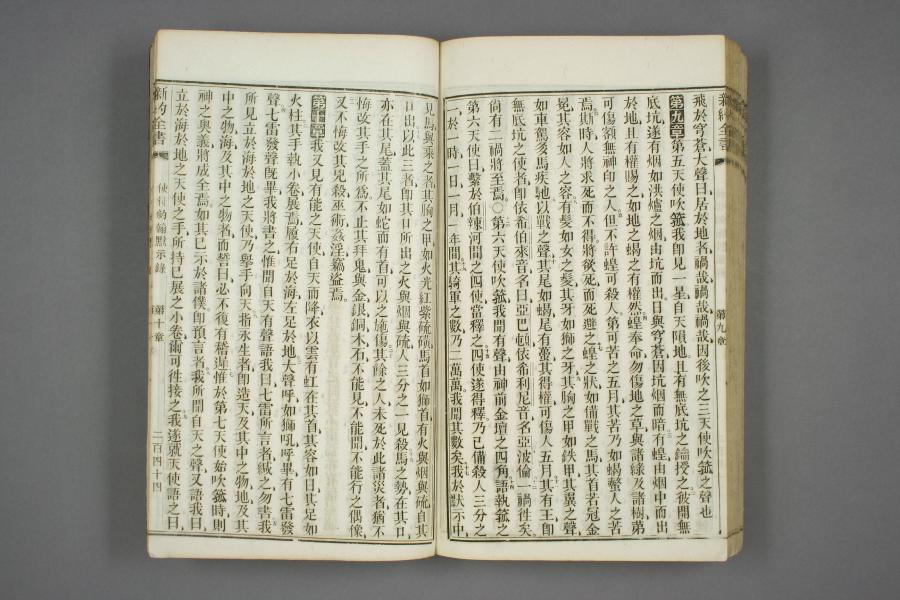 飛於穹蒼大聲曰居於地者禍哉禍哉禍哉因後吹之三天使吹箛之聲也
第九章第五天使吹箛我卽見一星自天隕地且有無底坑之鑰授之彼開無
底坑遂有烟如洪爐之烟由坑而出日與穹蒼因坑烟而暗有蝗由烟中而出
於地且有權賜之如地之蝎之有權然蝗奉命勿傷地之草與諸綠及諸樹第
可傷額無神印之人但不許蝗可殺人第可苦之五月其苦乃如蝎螫人之苦
焉斯時人將求死而不得將欲死而死避之蝗之狀如備戰之馬其首若冠金
冕其容如人之容有髮如女之髮其牙如獅之牙其胸之甲如鐵甲其翼之聲
如車羣多馬疾馳以戰之聲其尾如蝎尾有蠆其得權可傷人五月其有王卽
無底坑之使者卽依希伯來音名曰亞巴頓依希利尼音名亞波倫一禍徃矣
尚有二禍將至焉○第六天使吹箛我聞有聲由神前金壇之四角語執箛之
第六天使曰繫於伯辣河間之四使當釋之四使遂得釋乃已備殺人三分之
一於一時一日一月一年間其騎軍之數乃二萬萬我聞其數矣我於默示中
見馬與乘之者其胸之甲如火光紅紫硫磺馬首如獅首有火與烟與硫自其
口出以此三者卽其口所出之火與烟與硫人三分之一見殺馬之勢在其口
亦在其尾蓋其尾如蛇而有首可以之施傷其餘之人未死於此諸災者猶不
悔改其手之所爲不止其拜鬼與金銀銅木石不能見不能聞不能行之偶像
又不悔改其兇殺巫術姦淫竊盜焉
第十章我又見有能之天使自天而降衣以雲有虹在其首其容如日其足如
火柱其手執小卷展焉履右足於海左足於地大聲呼如獅吼呼畢有七雷發
聲七雷發聲旣畢我將書之惟聞自天有聲語我曰七雷所言者緘之勿書我
所見立於海於地之天使乃舉手向天指永生者卽造天及其中之物地及其
中之物海及其中之物者而誓曰必不復有稽遲惟於第七天使始吹箛時則
神之奧義將成全焉如其已示於諸僕卽預言者我所聞自天之聲又語我曰
立於海於地之天使之手所持已展之小卷爾可徃接之我遂就天使語之曰
新約全書
第九章
新約全書
使徒約翰默示錄
第十章
二百四十四